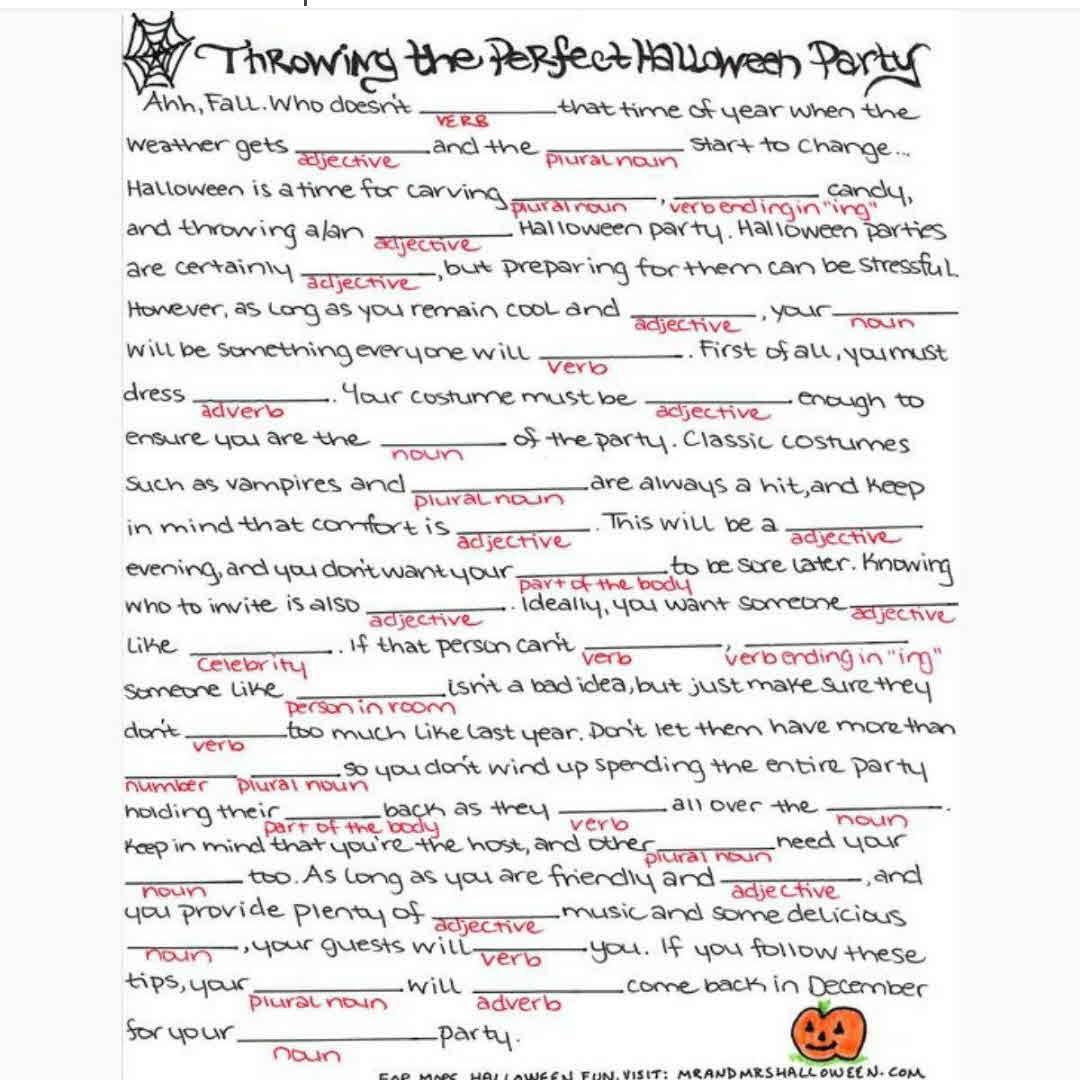 Throwing the Perfect Halloween Party
Ahh, Fall. Who doesn't __________ that time of year when the
VERB
weather gets __________ and the __________ start to change...
adjective plural noun
Halloween is a time for carving __________, __________ candy,
plural noun verb ending in "ing"
and throwing a/an __________ Halloween party. Halloween parties
adjective
are certainly __________, but preparing for them can be stressful.
adjective
However, as long as you remain cool and __________, your __________
adjective noun
will be something everyone will __________. First of all, you must
verb
dress __________. Your costume must be __________ enough to
adverb adjective
ensure you are the __________ of the party. Classic costumes
noun
such as vampires and __________ are always a hit, and keep
plural noun
in mind that comfort is __________. This will be a __________
adjective adjective
evening, and you don't want your __________ to be sore later. Knowing
part of the body
who to invite is also __________. Ideally, you want someone __________
adjective adjective
like __________. If that person can't __________, __________
celebrity verb verb ending in "ing"
someone like __________ isn't a bad idea, but just make sure they
person in room
don't __________ too much like last year. Don't let them have more than
verb
__________ __________ so you don't wind up spending the entire party
number plural noun
holding their __________ back as they __________ all over the __________.
part of the body verb noun
Keep in mind that you're the host, and other __________ need your
plural noun
__________ too. As long as you are friendly and __________, and
noun adjective
you provide plenty of __________ music and some delicious
adjective
__________, your guests will __________ you. If you follow these
noun verb
tips, your __________ will __________ come back in December
plural noun adverb
for your __________ party.
noun
FOR MORE HALLOWEEN FUN, VISIT: MRANDMRSHALLOWEEN.COM